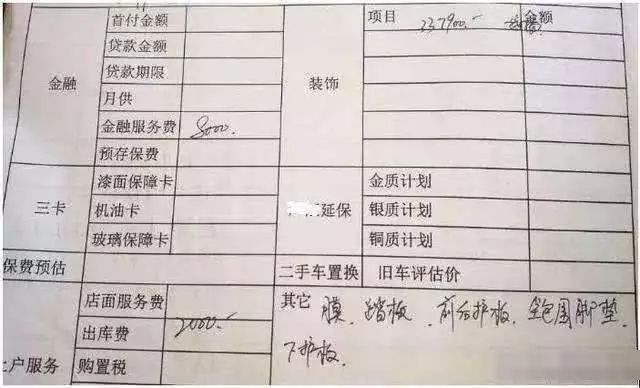 首付金额 项目 237900.- 金额
贷款金额
贷款期限
金融 装饰
月供
金融服务费 8000.
预存保费
漆面保障卡 金质计划
三卡 机油卡 延保 银质计划
玻璃保障卡 铜质计划
保费预估 二手车置换 旧车评估价
店面服务费 其它 膜、踏板、前后护板、全包围脚垫
出库费 2000.- 下护板.
户服务 购置税